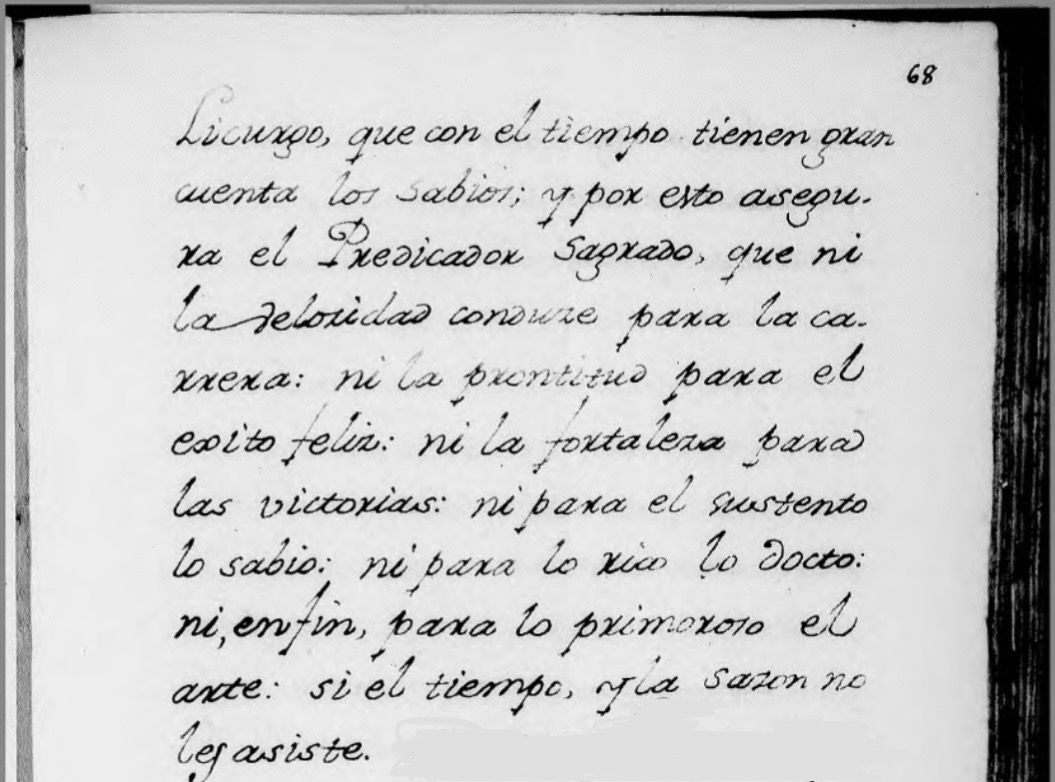 68
Licurgo, que con el tiempo tienen gran
cuenta los sabios; y por esto asegu-
ra el Predicador Sagrado, que ni
la veloridad conduze para la ca-
rrera: ni la prontitud para el
exito feliz: ni la fortaleza para
las victorias: ni para el sustento
lo sabio: ni para lo rico lo docto:
ni, enfin, para lo primoroso el
arte: si el tiempo, y la sazon no
les asiste.